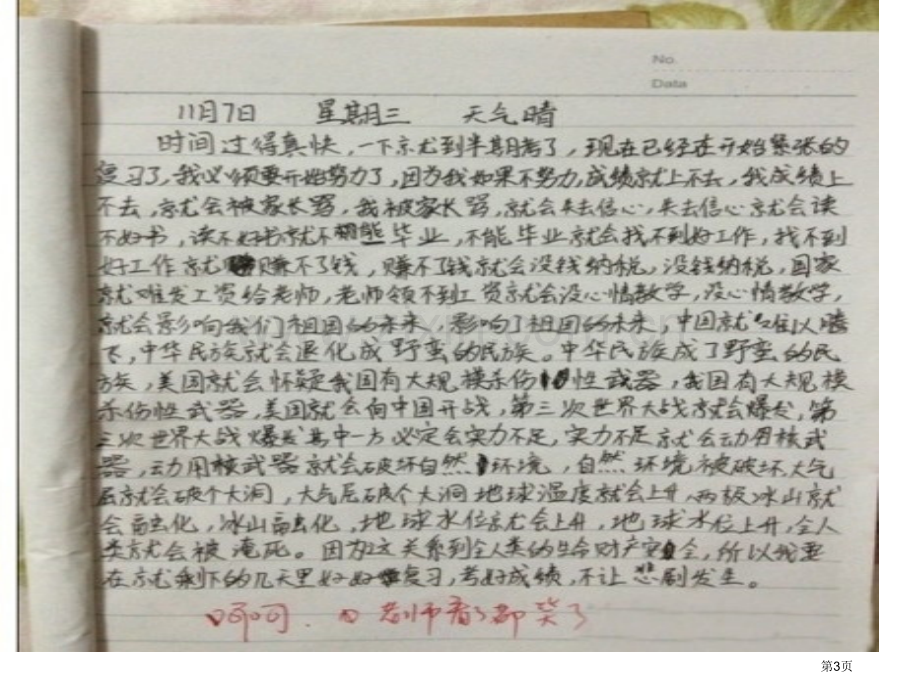 No.
Data
11月7日 星期三 天气晴
时间过得真快,一下就到半期考了,现在已经在开始紧张的
复习了,我必须要开始努力了,因为我如果不努力,成绩就上不去,我成绩上
不去,就会被家长骂,我被家长骂,就会失去信心,失去信心就会读
不好书,读不好书就不能毕业,不能毕业就会找不到好工作,找不到
好工作就赚不了钱,赚不了钱就会没钱纳税,没钱纳税,国家
就难发工资给老师,老师领不到工资就会没心情教学,没心情教学,
就会影响我们祖国的未来,影响了祖国的未来,中国就难以腾
飞,中华民族就会退化成野蛮的民族。中华民族成了野蛮的民
族,美国就会怀疑我国有大规模杀伤性武器,我国有大规模
杀伤性武器,美国就会向中国开战,第三次世界大战就会爆发,第
三次世界大战爆发其中一方必定会实力不足,实力不足就会动用核武
器,动用核武器就会破坏自然环境,自然环境被破坏,大气
层就会破个大洞,大气层破个大洞地球温度就会上升,两极冰山就
会融化,冰山融化,地球水位就会上升,地球水位上升,全人
类就会被淹死。因为这关系到全人类的生命财产安全,所以我要
在就剩下的几天里好好复习,考好成绩,不让悲剧发生。
呵呵. 老师看了都笑了
第3页